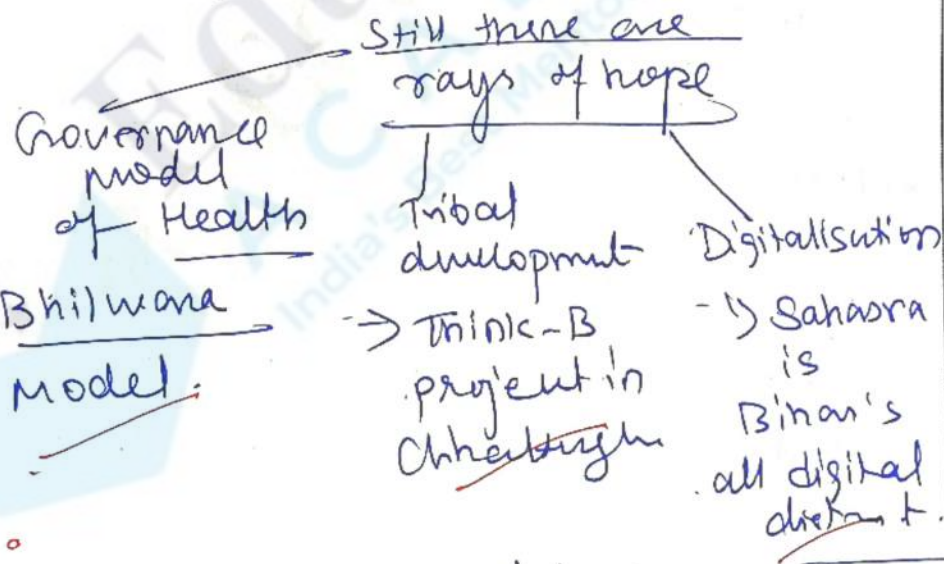 Still there are
rays of hope
Governance
model
of Health
Bhilwara
Model.
Tribal
development
→ Think-B
project in
Chhattisgarh
Digitalisation
→ Sahasra
is
Bihar's
all digital
district.